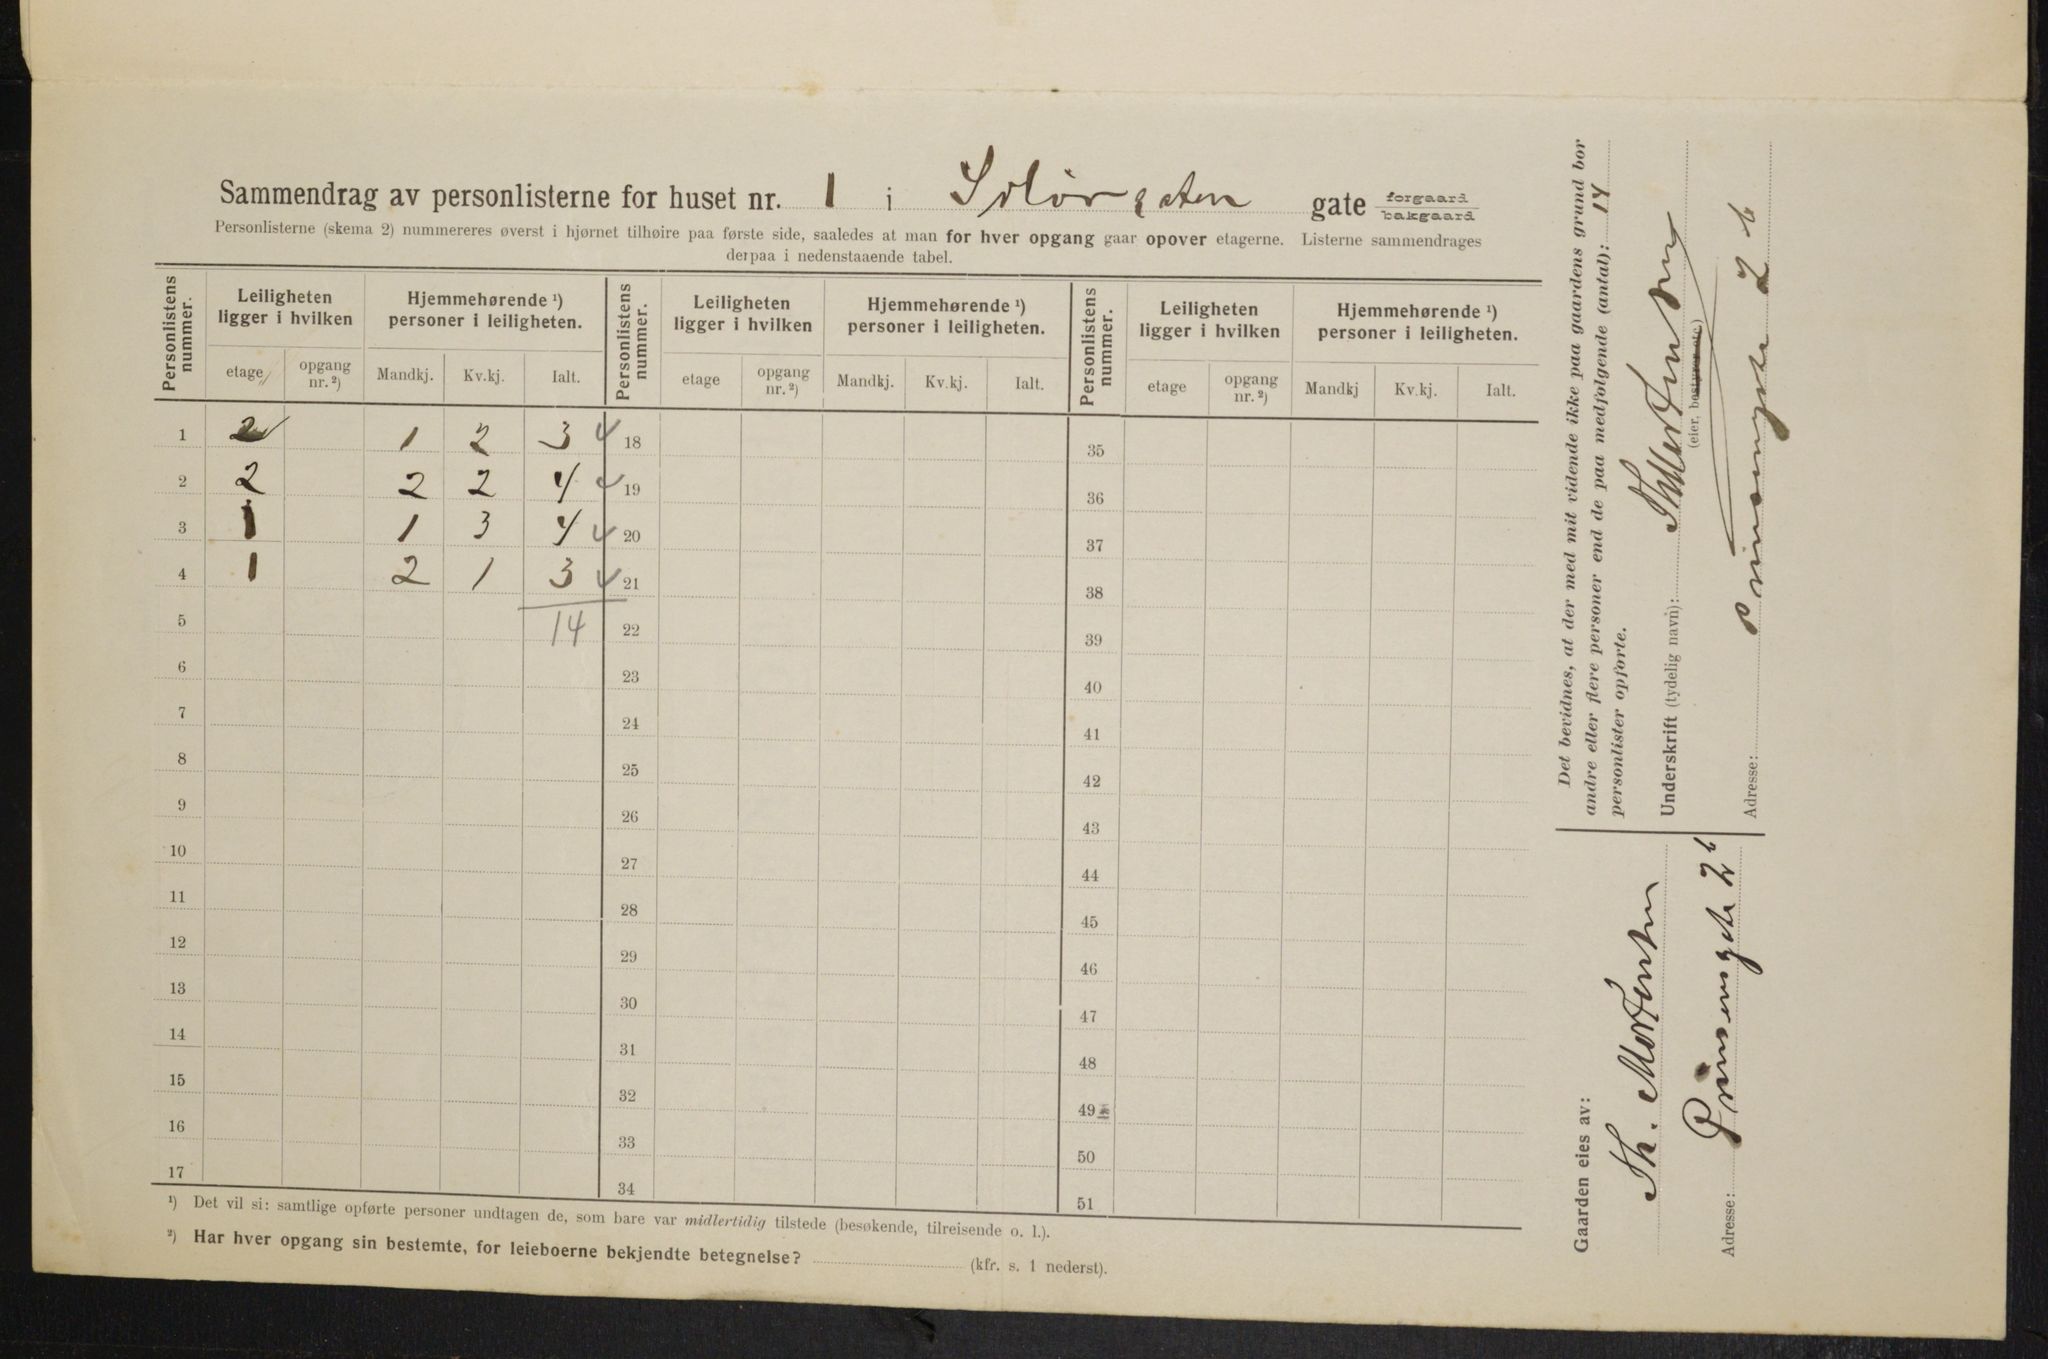 Sammendrag av personlisterne for huset nr. 1 i Solørgaten gate forgaard bakgaard
Personlisterne (skema 2) nummereres øverst i hjørnet tilhøire paa første side, saaledes at man for hver opgang gaar opover etagerne. Listerne sammendrages
derpaa i nedenstaaende tabel.
Personlistens nummer. Leiligheten ligger i hvilken Hjemmehørende ¹) personer i leiligheten. Personlistens nummer. Leiligheten ligger i hvilken Hjemmehørende ¹) personer i leiligheten. Personlistens nummer. Leiligheten ligger i hvilken Hjemmehørende ¹) personer i leiligheten.
etage opgang nr. ²) Mandkj. Kv.kj. Ialt. etage opgang nr. ²) Mandkj. Kv.kj. Ialt. etage opgang nr. ²) Mandkj Kv.kj. Ialt.
1 2 1 2 3 18 35
2 2 2 2 4 19 36
3 1 1 3 4 20 37
4 1 2 1 3 21 38
5 14 22 39
6 23 40
7 24 41
8 25 42
9 26 43
10 27 44
11 28 45
12 29 46
13 30 47
14 31 48
15 32 49
16 33 50
17 34 51
¹) Det vil si: samtlige opførte personer undtagen de, som bare var midlertidig tilstede (besøkende, tilreisende o. l.).
²) Har hver opgang sin bestemte, for leieboerne bekjendte betegnelse? (kfr. s. 1 nederst).
Det bevidnes, at der med mit vidende ikke paa gaardens grund bor
andre eller flere personer end de paa medfølgende (antal): 14
personlister opførte.
Underskrift (tydelig navn): Th Mortensen
(eier, bestyrer etc)
Adresse: Prinsensgte 2 b
Gaarden eies av:
Th. Mortensen
Adresse: Prinsensgte 2 b